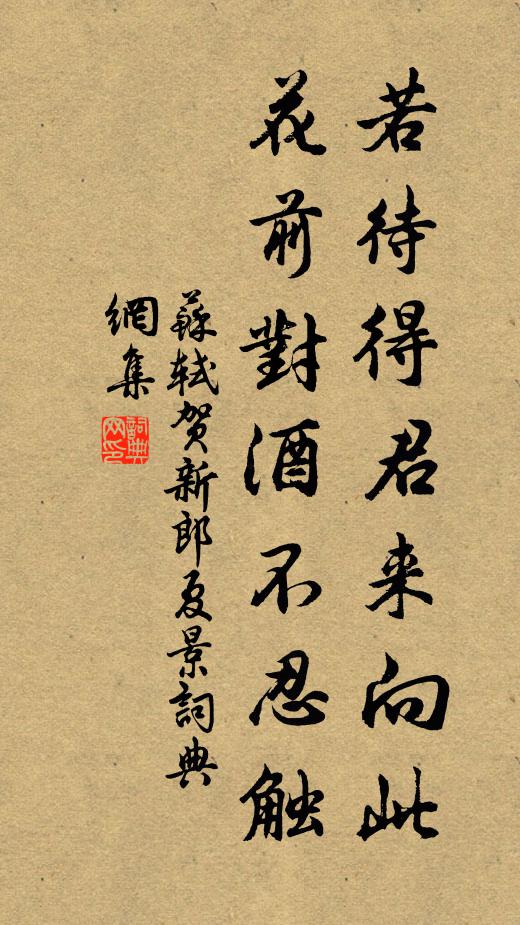 若待得君来向此
花前對酒不忍触
蘇軾贺新郎夏景詞典
網集
詞典網印